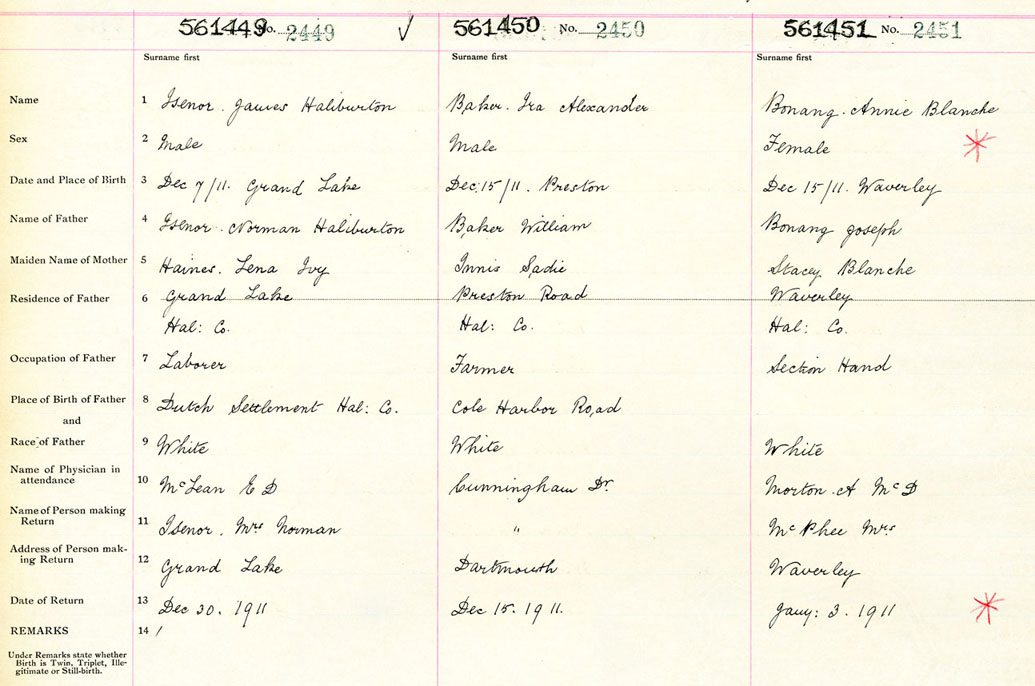 561449 No. 2449 ✓ 561450 No. 2450 561451 No. 2451
Surname first Surname first Surname first
Name 1 Isenor. James Haliburton Baker. Ira Alexander Bonang. Annie Blanche
Sex 2 Male Male Female *
Date and Place of Birth 3 Dec 7/11. Grand Lake Dec: 15/11. Preston Dec 15/11. Waverley
Name of Father 4 Isenor. Norman Haliburton Baker William Bonang Joseph
Maiden Name of Mother 5 Haines. Lena Ivy Innis Sadie Stacey Blanche
Residence of Father 6 Grand Lake Preston Road Waverley
Hal: Co. Hal: Co. Hal: Co.
Occupation of Father 7 Laborer Farmer Section Hand
Place of Birth of Father 8 Dutch Settlement Hal: Co. Cole Harbor Road
and
Race of Father 9 White White White
Name of Physician in
attendance 10 McLean E D Cunningham Dr. Morton. A McD
Name of Person making
Return 11 Isenor. Mrs Norman " McPhee Mrs
Address of Person mak-
ing Return 12 Grand Lake Dartmouth Waverley
Date of Return 13 Dec 30. 1911 Dec 15. 1911. Jany: 3. 1911 *
REMARKS 14 /
Under Remarks state whether
Birth is Twin, Triplet, Ille-
gitimate or Still-birth.